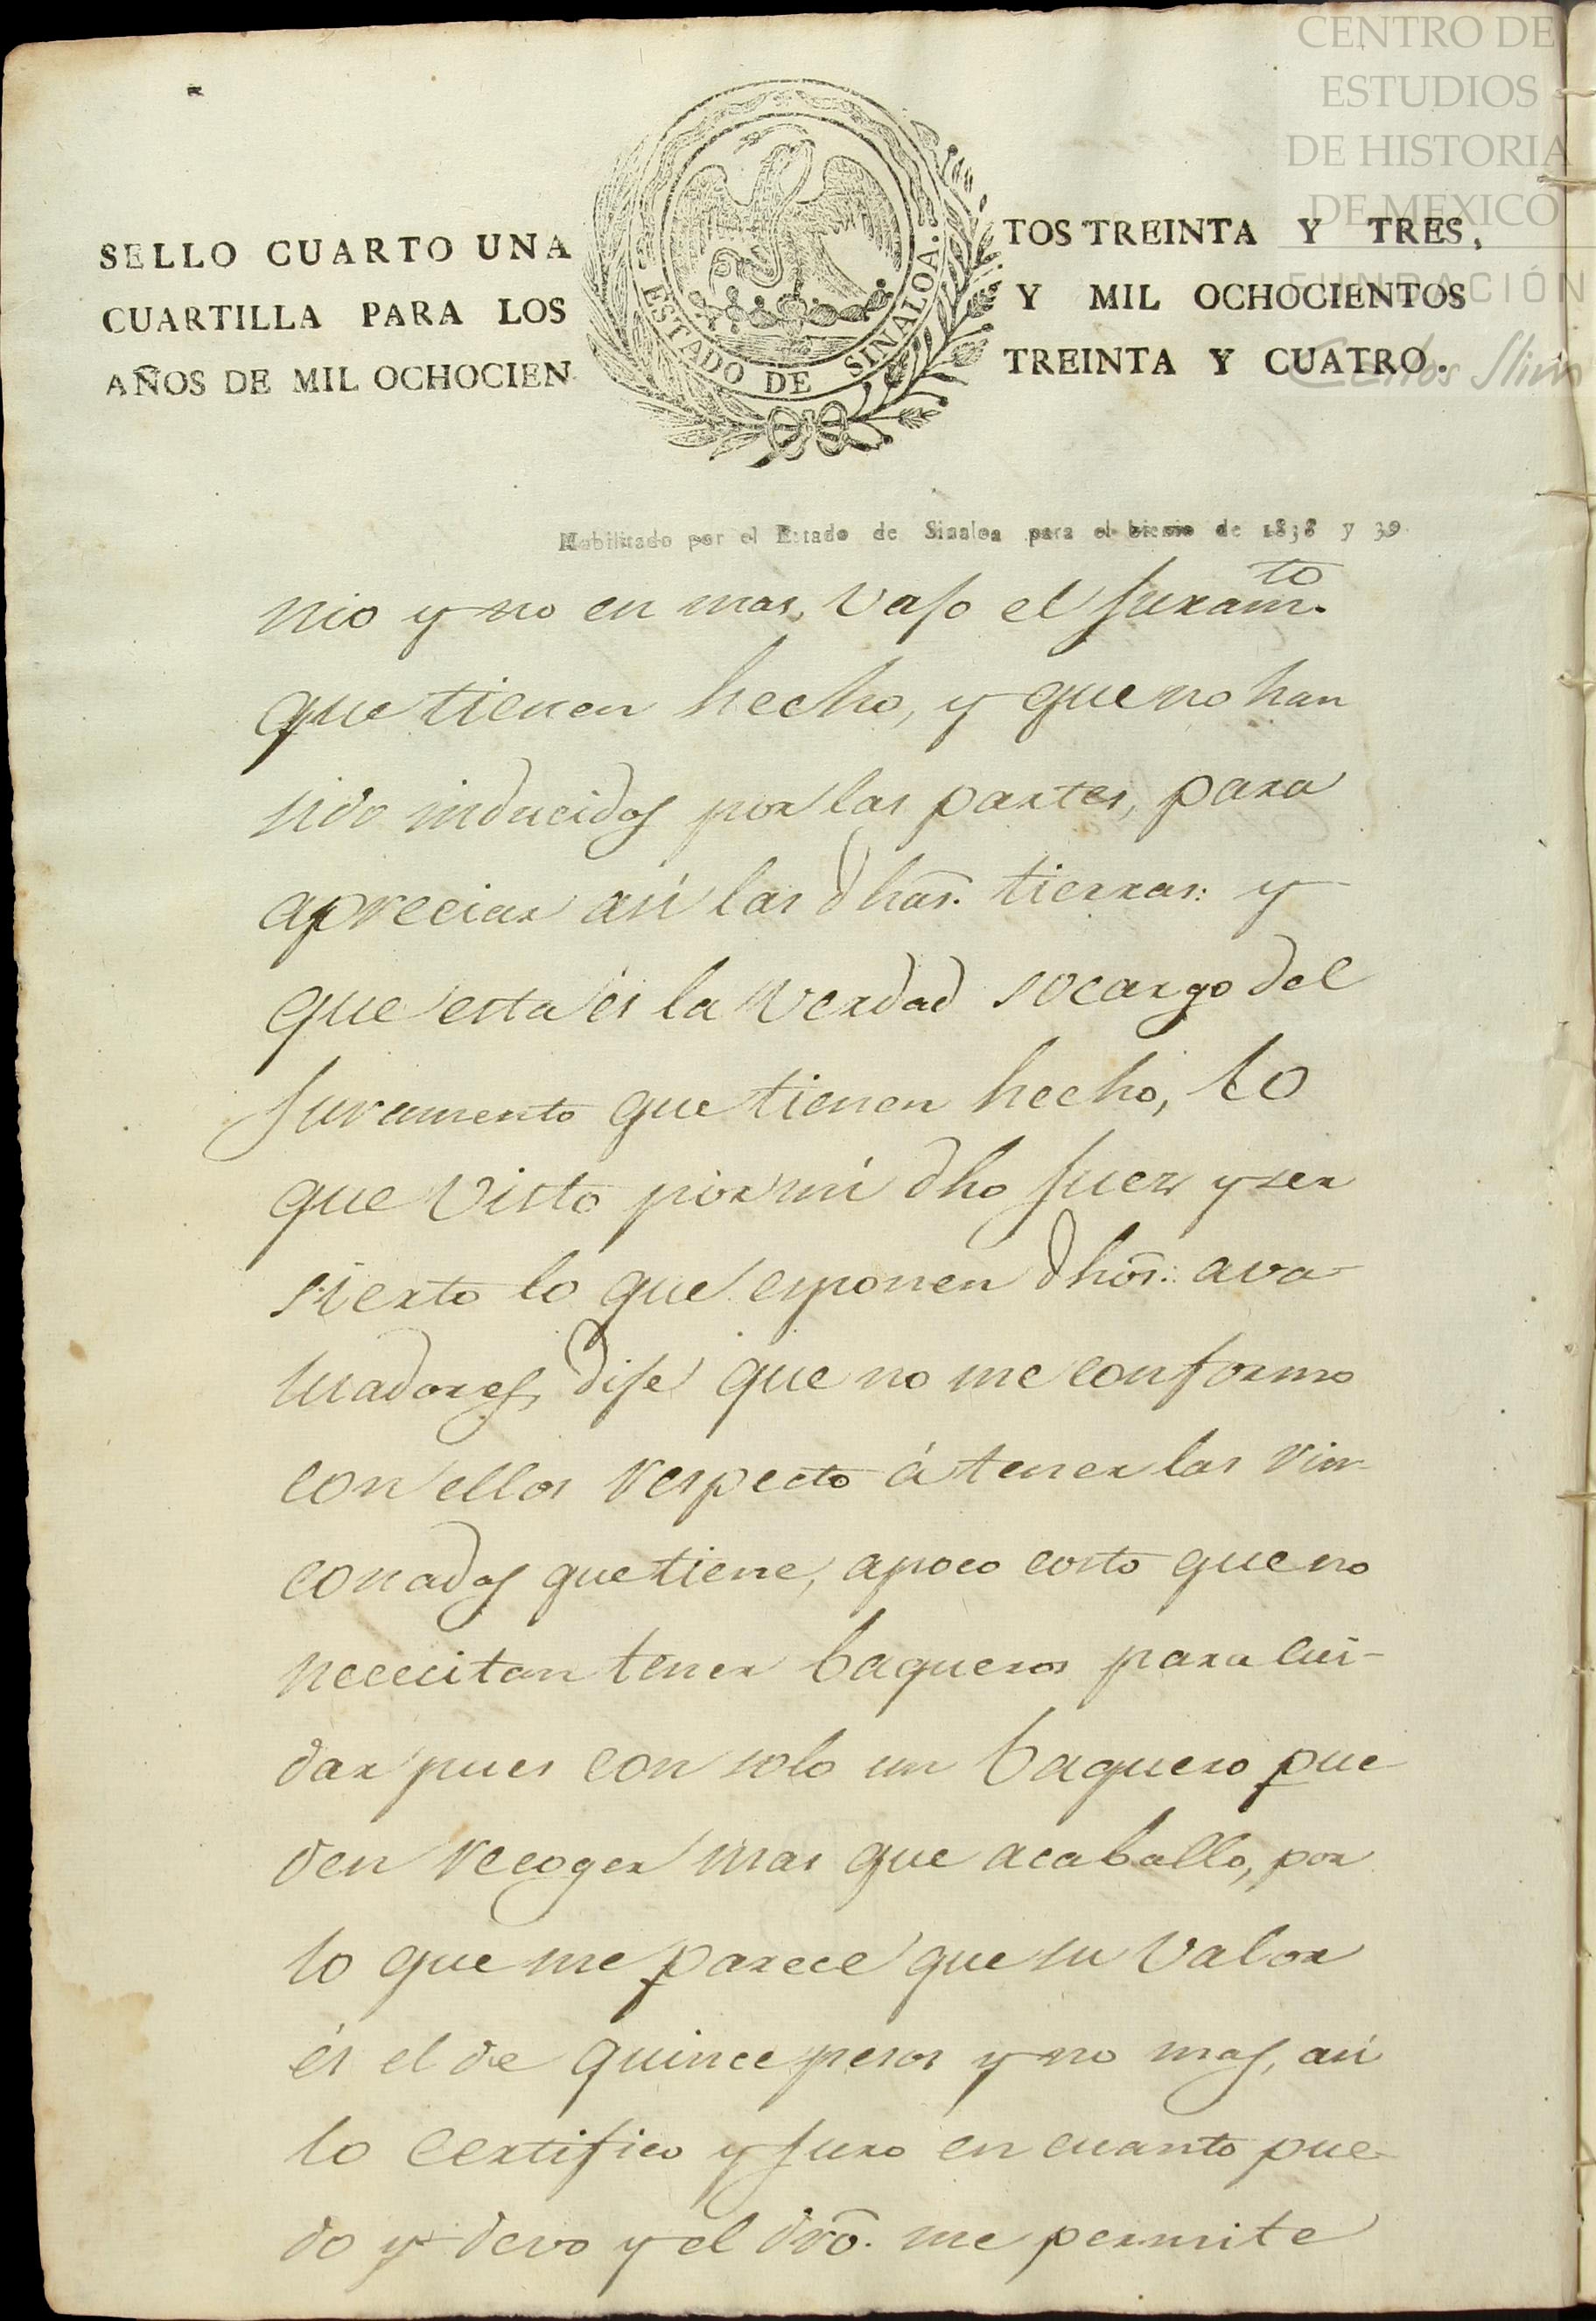 CENTRO DE
ESTUDIOS
DE HISTORIA
DE MEXICO
FUNDACIÓN
Carlos Slim
SELLO CUARTO UNA
CUARTILLA PARA LOS
AÑOS DE MIL OCHOCIEN
ESTADO DE SINALOA.
TOS TREINTA Y TRES,
Y MIL OCHOCIENTOS
TREINTA Y CUATRO.
Habilitado por el Estado de Sinaloa para el bienio de 1838 y 39
nio y no en mas, vajo el juramto.
que tienen hecho, y que no han
sido inducidos por las partes, para
apreciar así las dhas. tierras: y
que esta és la verdad socargo del
juramento que tienen hecho, lo
que visto por mí dho juez y ser
sierto lo que esponen dhos: ava-
luadores, dije que no me conformo
con ellos respecto á tener las rin-
conadas que tiene, apoco costo que no
nececitan tener baqueros para cui-
dar pues con solo un baquero pue
den recoger mas que acaballo, por
lo que me parece que su valor
és el de quince pesos y no mas, así
lo certifico y juro en cuanto pue-
do y devo y el dro. me permite